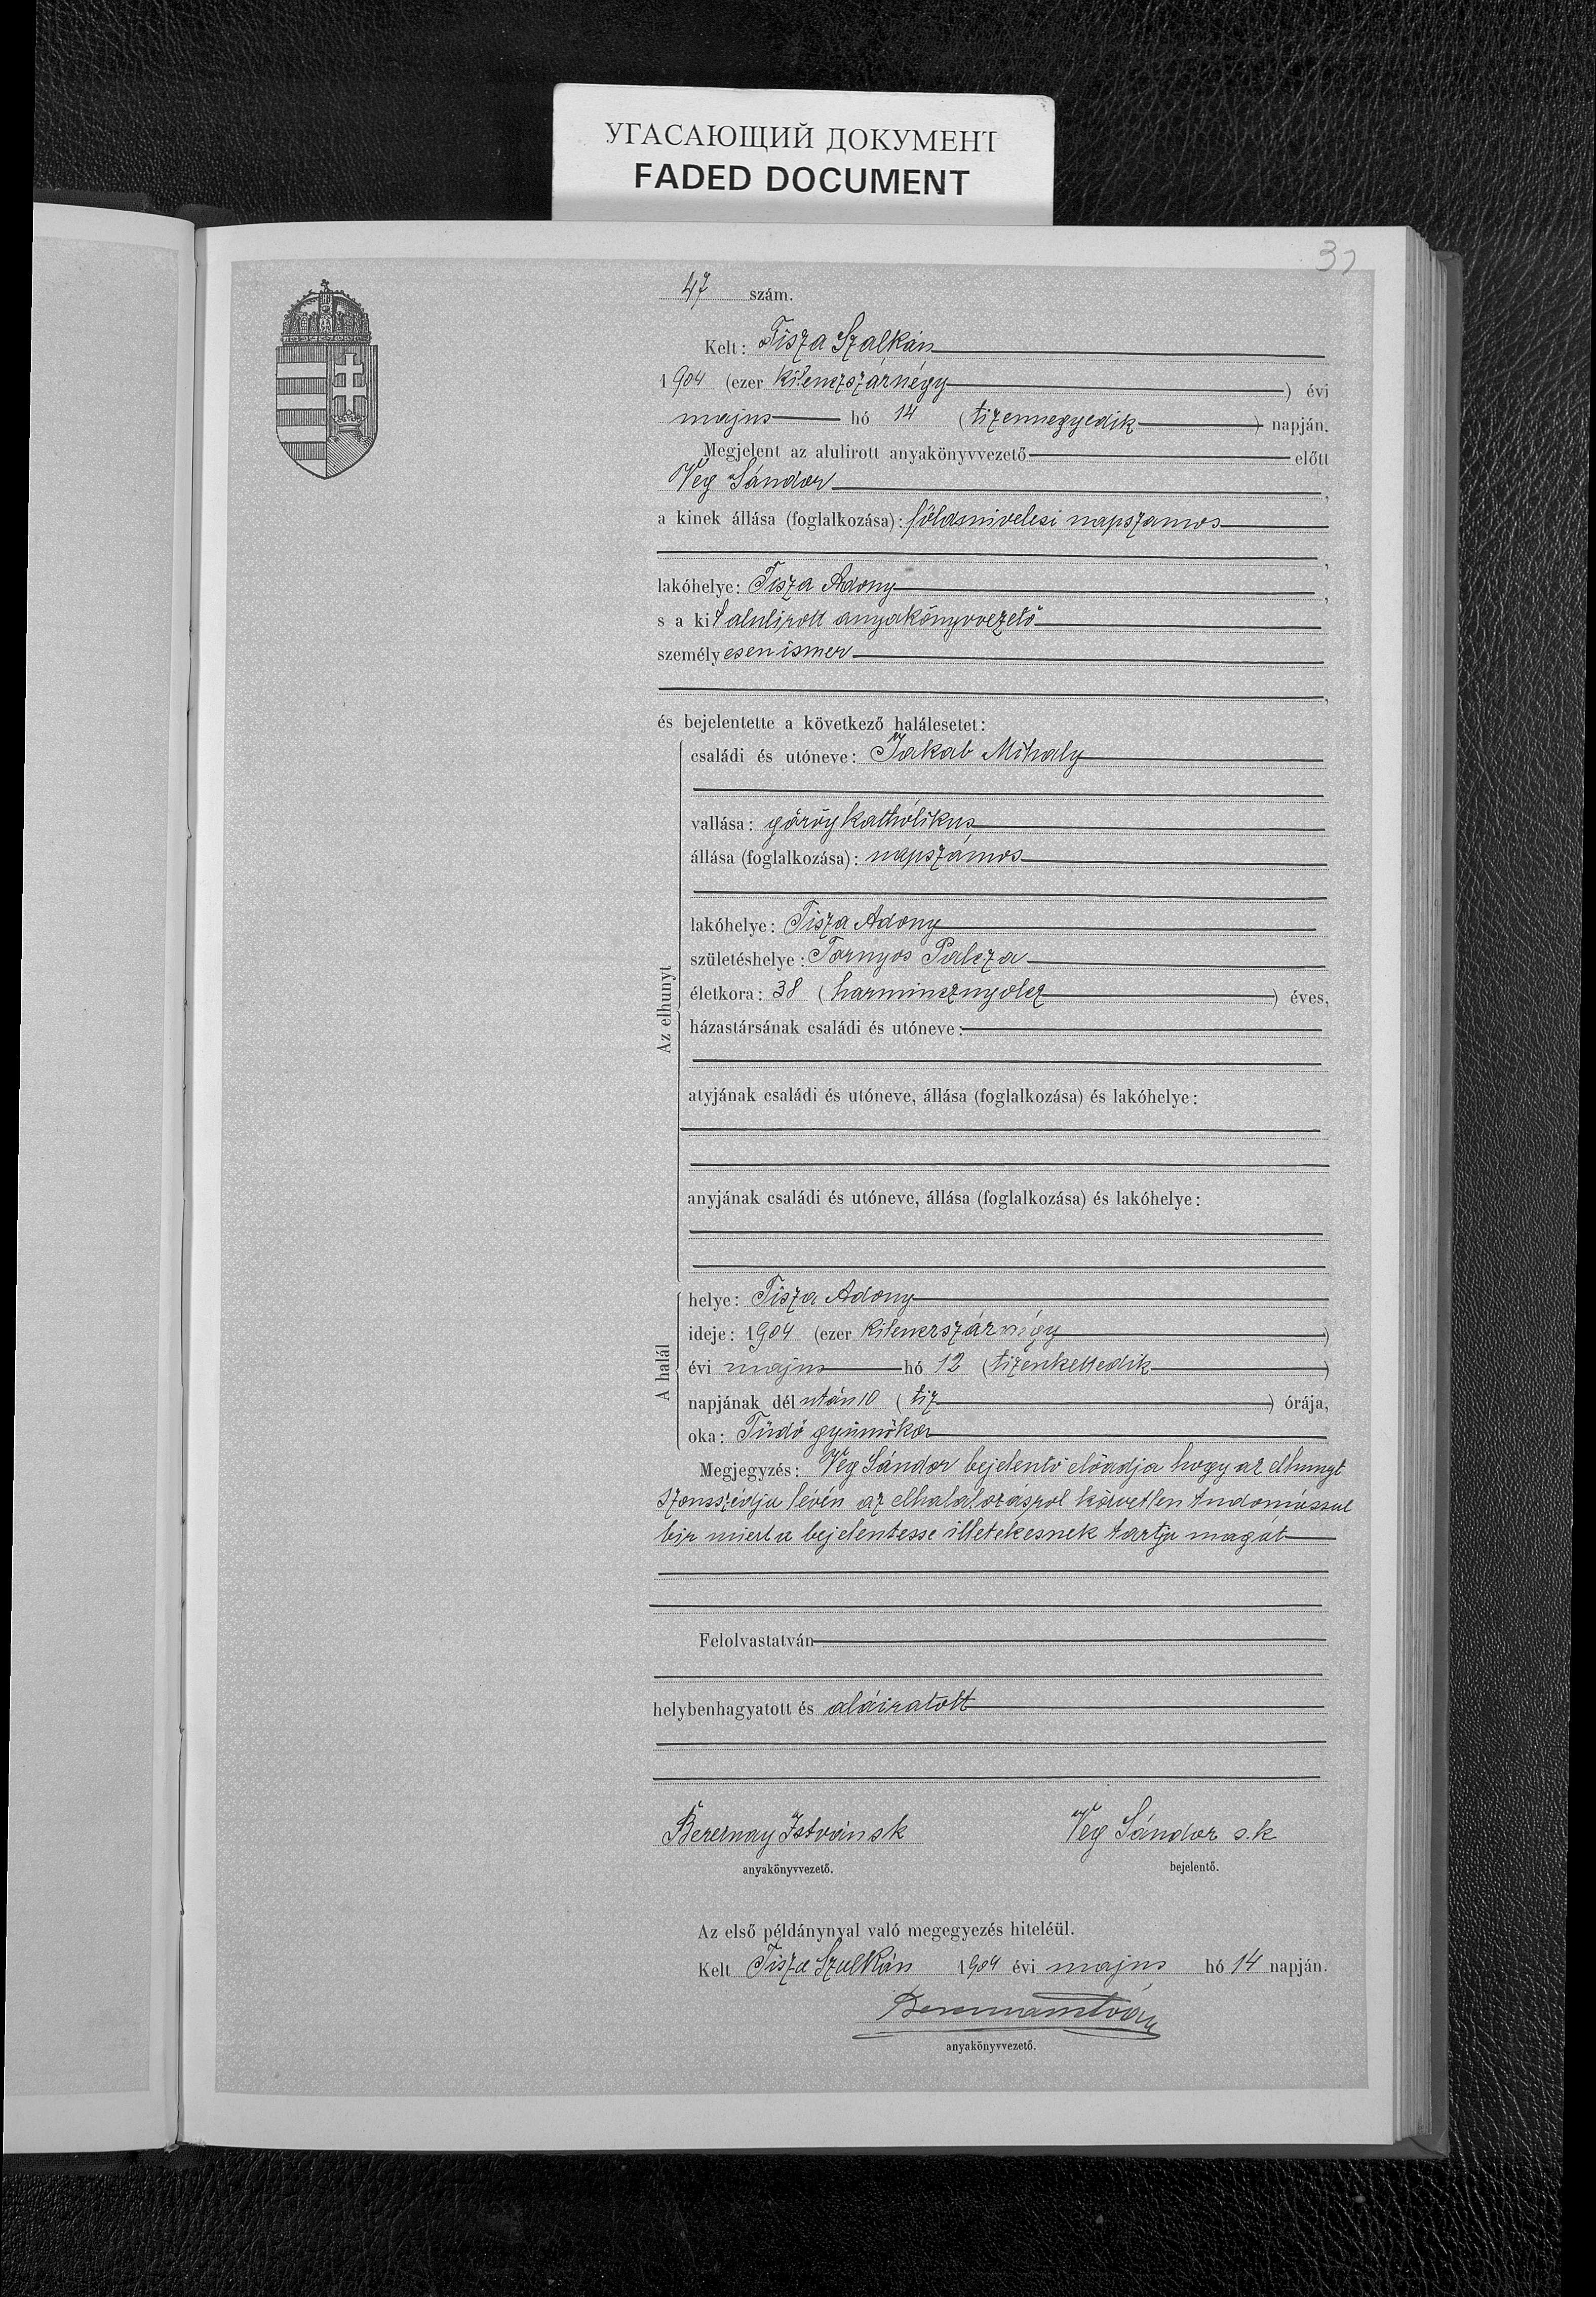 УГАСАЮЩИЙ ДОКУМЕНТ
FADED DOCUMENT
47 szám.
Kelt: Tisza Szalkán
1904 (ezer kilenczszáznégy) évi
majus hó 14 (tizennegyedik) napján.
Megjelent az alulirott anyakönyvvezető előtt
Vég Sándor,
a kinek állása (foglalkozása): földmivelesi napszamos
,
lakóhelye: Tisza Adony,
s a kit alulirott anyakönyvvezető
személyesen ismer
,
és bejelentette a következő halálesetet:
Az elhunyt
családi és utóneve: Jakab Mihaly
vallása: görög katholikus
állása (foglalkozása): napszámos
lakóhelye: Tisza Adony
születéshelye: Tornyos Palcza
életkora: 38 (harmincznyolcz) éves,
házastársának családi és utóneve:
atyjának családi és utóneve, állása (foglalkozása) és lakóhelye:
anyjának családi és utóneve, állása (foglalkozása) és lakóhelye:
A halál
helye: Tisza Adony
ideje: 1904 (ezer kilenczszáznégy)
évi majus hó 12 (tizenkettedik)
napjának dél után 10 (tiz) órája,
oka: Tüdő gyümőkor
Megjegyzés: Vég Sándor bejelentő előadja hogy az elhunyt
szomszédja lévén az elhalalozásrol közvetlen tudomással
bir miert a bejelentesse illetekesnek tartja magát
Felolvastatván
helybenhagyatott és aláiratott
István sk
anyakönyvvezető.
Vég Sándor s.k
bejelentő.
Az első példánynyal való megegyezés hiteléül.
Kelt Tisza Szalkán 1904 évi majus hó 14 napján.
anyakönyvvezető.